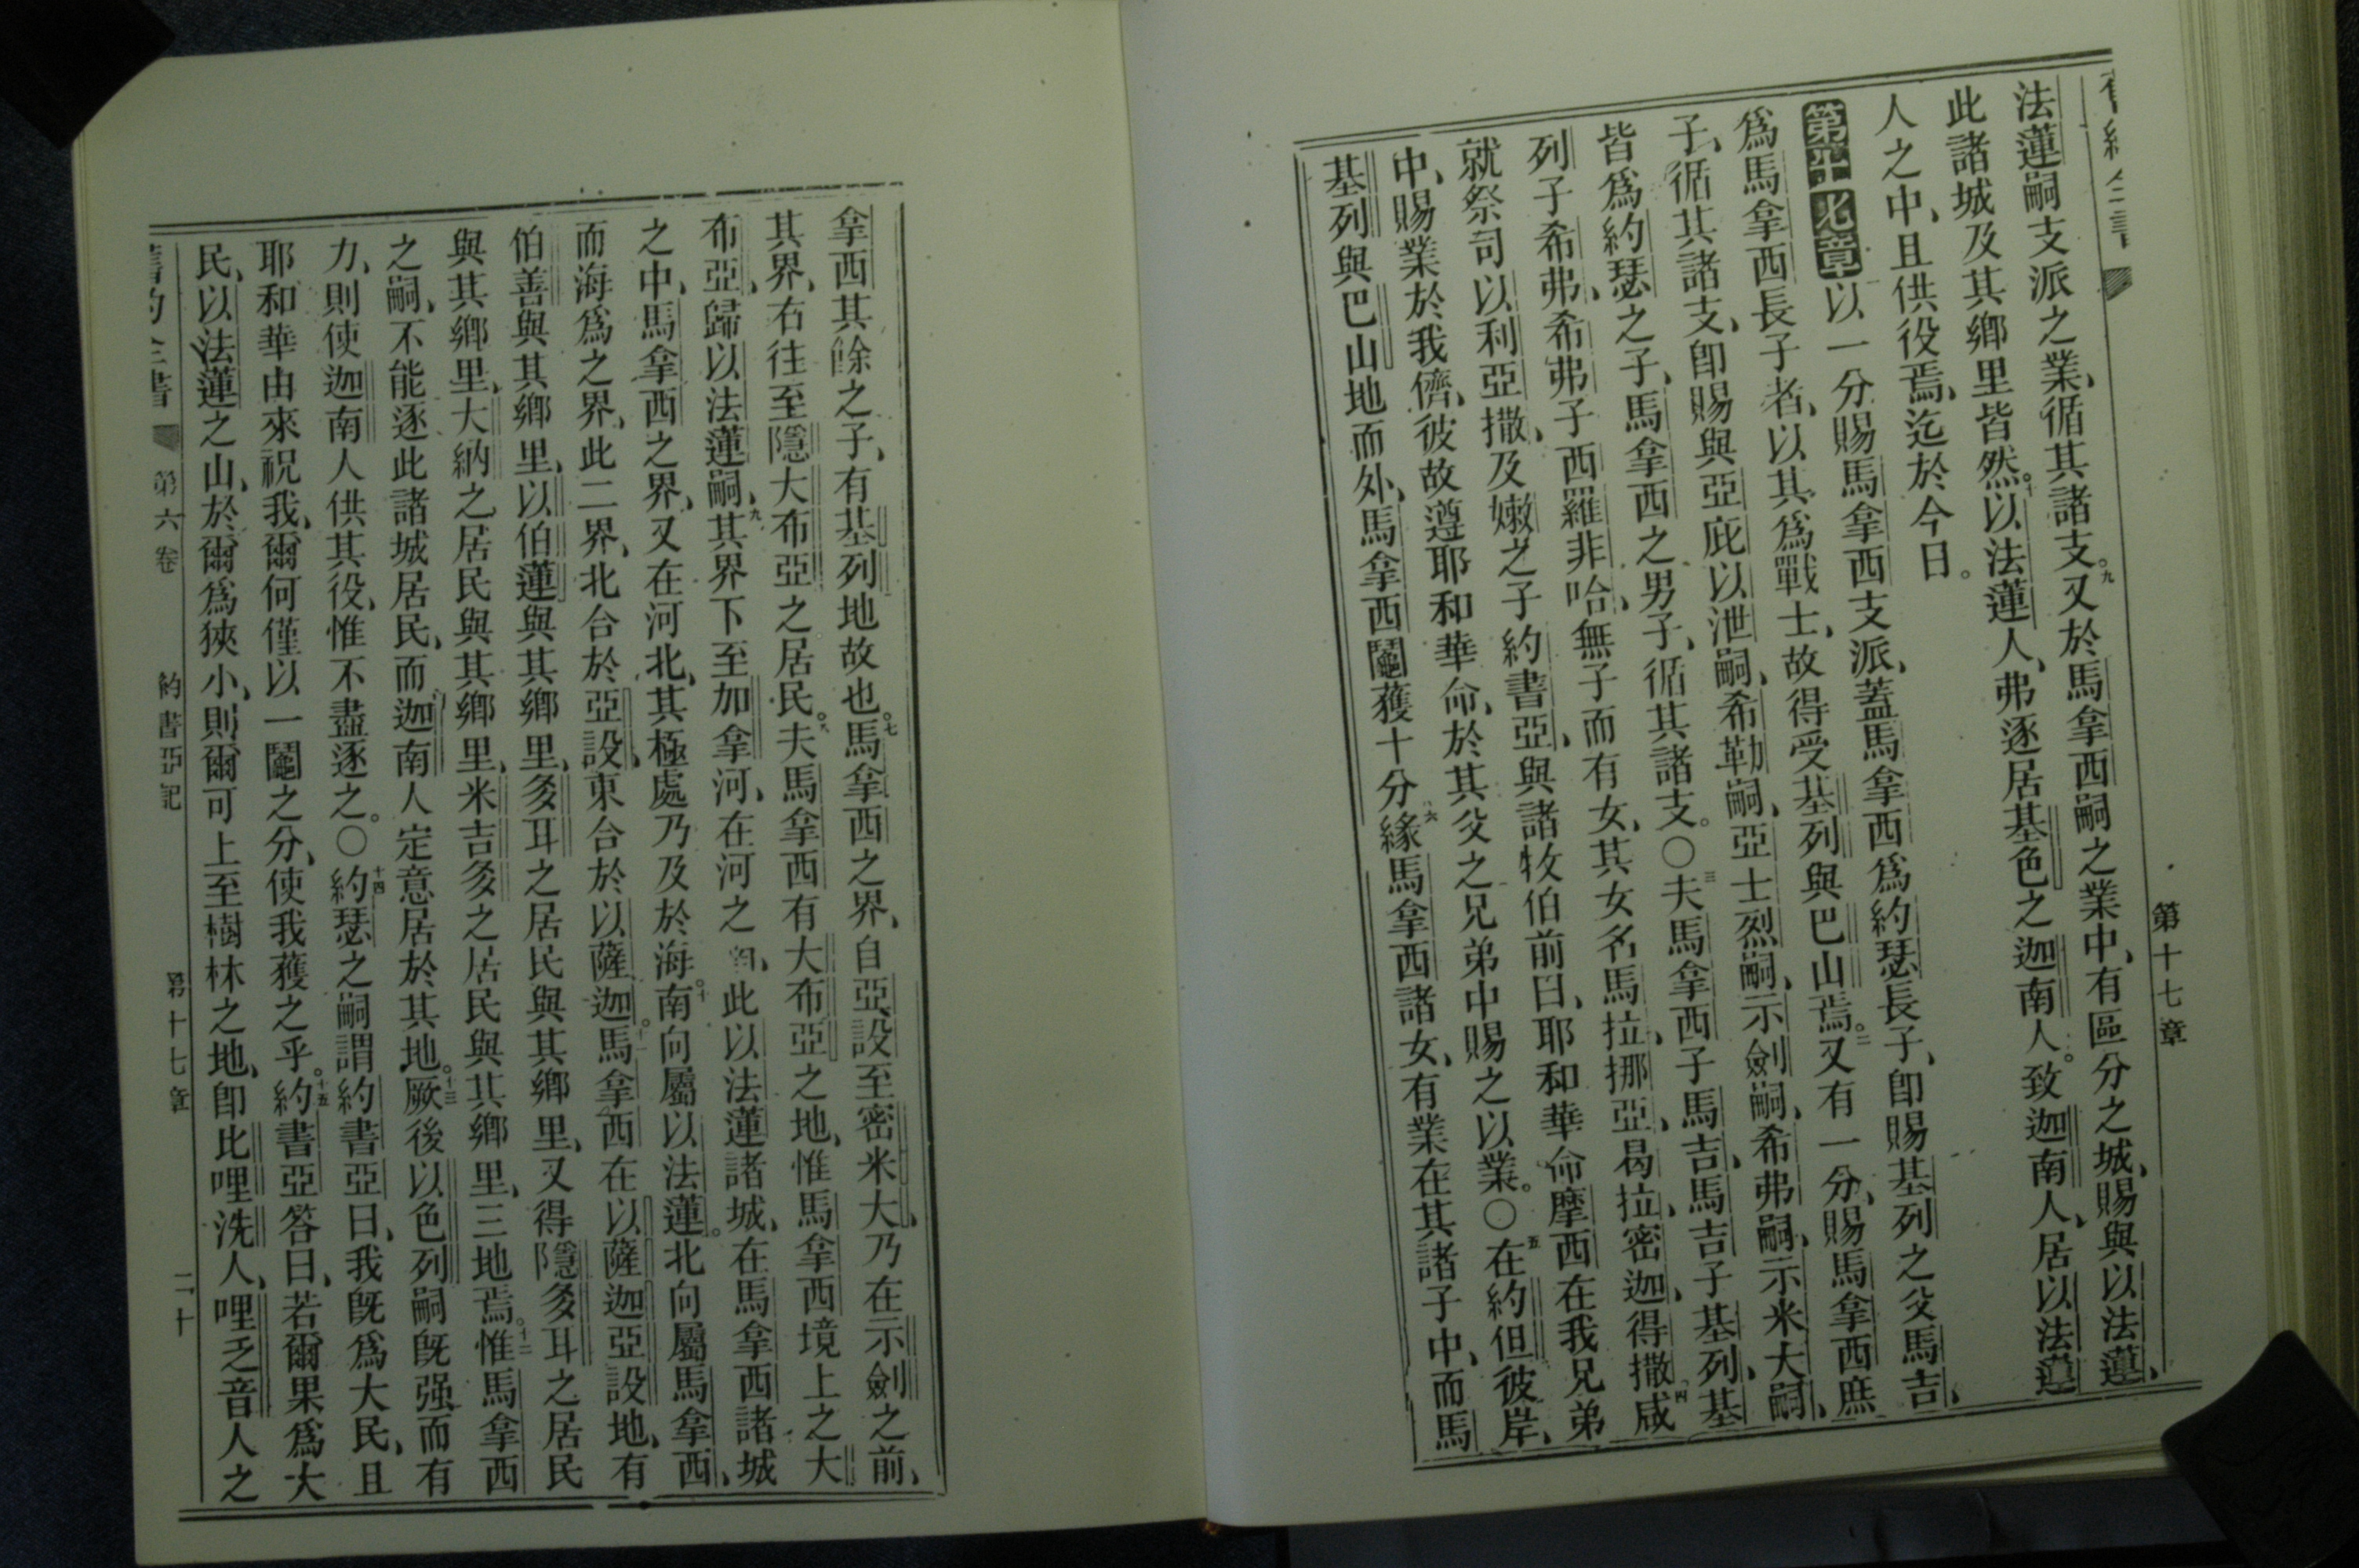 第十七章
法蓮嗣支派之業、循其諸支。九又於馬拿西嗣之業中、有區分之城、賜與以法蓮、
此諸城及其鄉里皆然。十以法蓮人、弗逐居基色之迦南人。致迦南人、居以法蓮
人之中、且供役焉、迄於今日。
第十七章以一分賜馬拿西支派、蓋馬拿西爲約瑟長子、卽賜基列之父馬吉、
爲馬拿西長子者、以其爲戰士、故得受基列與巴山焉。二又有一分、賜馬拿西庶
子、循其諸支、卽賜與亞庇以泄嗣、希勒嗣、亞士烈嗣、示劍嗣、希弗嗣、示米大嗣、
皆爲約瑟之子、馬拿西之男子、循其諸支。〇三夫馬拿西子馬吉、馬吉子基列、基
列子希弗、希弗子西羅非哈、無子而有女、其女名馬拉、挪亞、曷拉、密迦、得撒四咸
就祭司以利亞撒、及嫩之子約書亞、與諸牧伯前曰、耶和華命摩西在我兄弟
中、賜業於我儕、彼故遵耶和華命、於其父之兄弟中賜之以業。〇五在約但彼岸、
基列與巴山地而外、馬拿西鬮獲十分六緣馬拿西諸女、有業在其諸子中、而馬
拿西其餘之子、有基列地故也。七馬拿西之界、自亞設至密米大、乃在示劍之前、
其界、右往至隱大布亞之居民。八夫馬拿西有大布亞之地、惟馬拿西境上之大
布亞、歸以法蓮嗣、九其界下至加拿河、在河之南、此以法蓮諸城、在馬拿西諸城
之中、馬拿西之界、又在河北、其極處乃及於海。十南向屬以法蓮。北向屬馬拿西、
而海爲之界、此二界、北合於亞設、東合於以薩迦。十一馬拿西在以薩迦亞設地、有
伯善與其鄉里、以伯蓮與其鄉里、多耳之居民與其鄉里、又得隱多耳之居民
與其鄉里、大納之居民與其鄉里、米吉多之居民與其鄉里、三地焉。十二惟馬拿西
之嗣、不能逐此諸城居民、而迦南人定意居於其地。十三厥後以色列嗣既强而有
力、則使迦南人供其役、惟不盡逐之。〇十四約瑟之嗣謂約書亞曰、我既爲大民、且
耶和華由來祝我、爾何僅以一鬮之分、使我獲之乎。十五約書亞答曰、若爾果爲大
民、以法蓮之山、於爾爲狹小、則爾可上至樹林之地、卽比哩洗人、哩乏音人之
舊約全書 第六卷 約書亞記 第十七章 二十